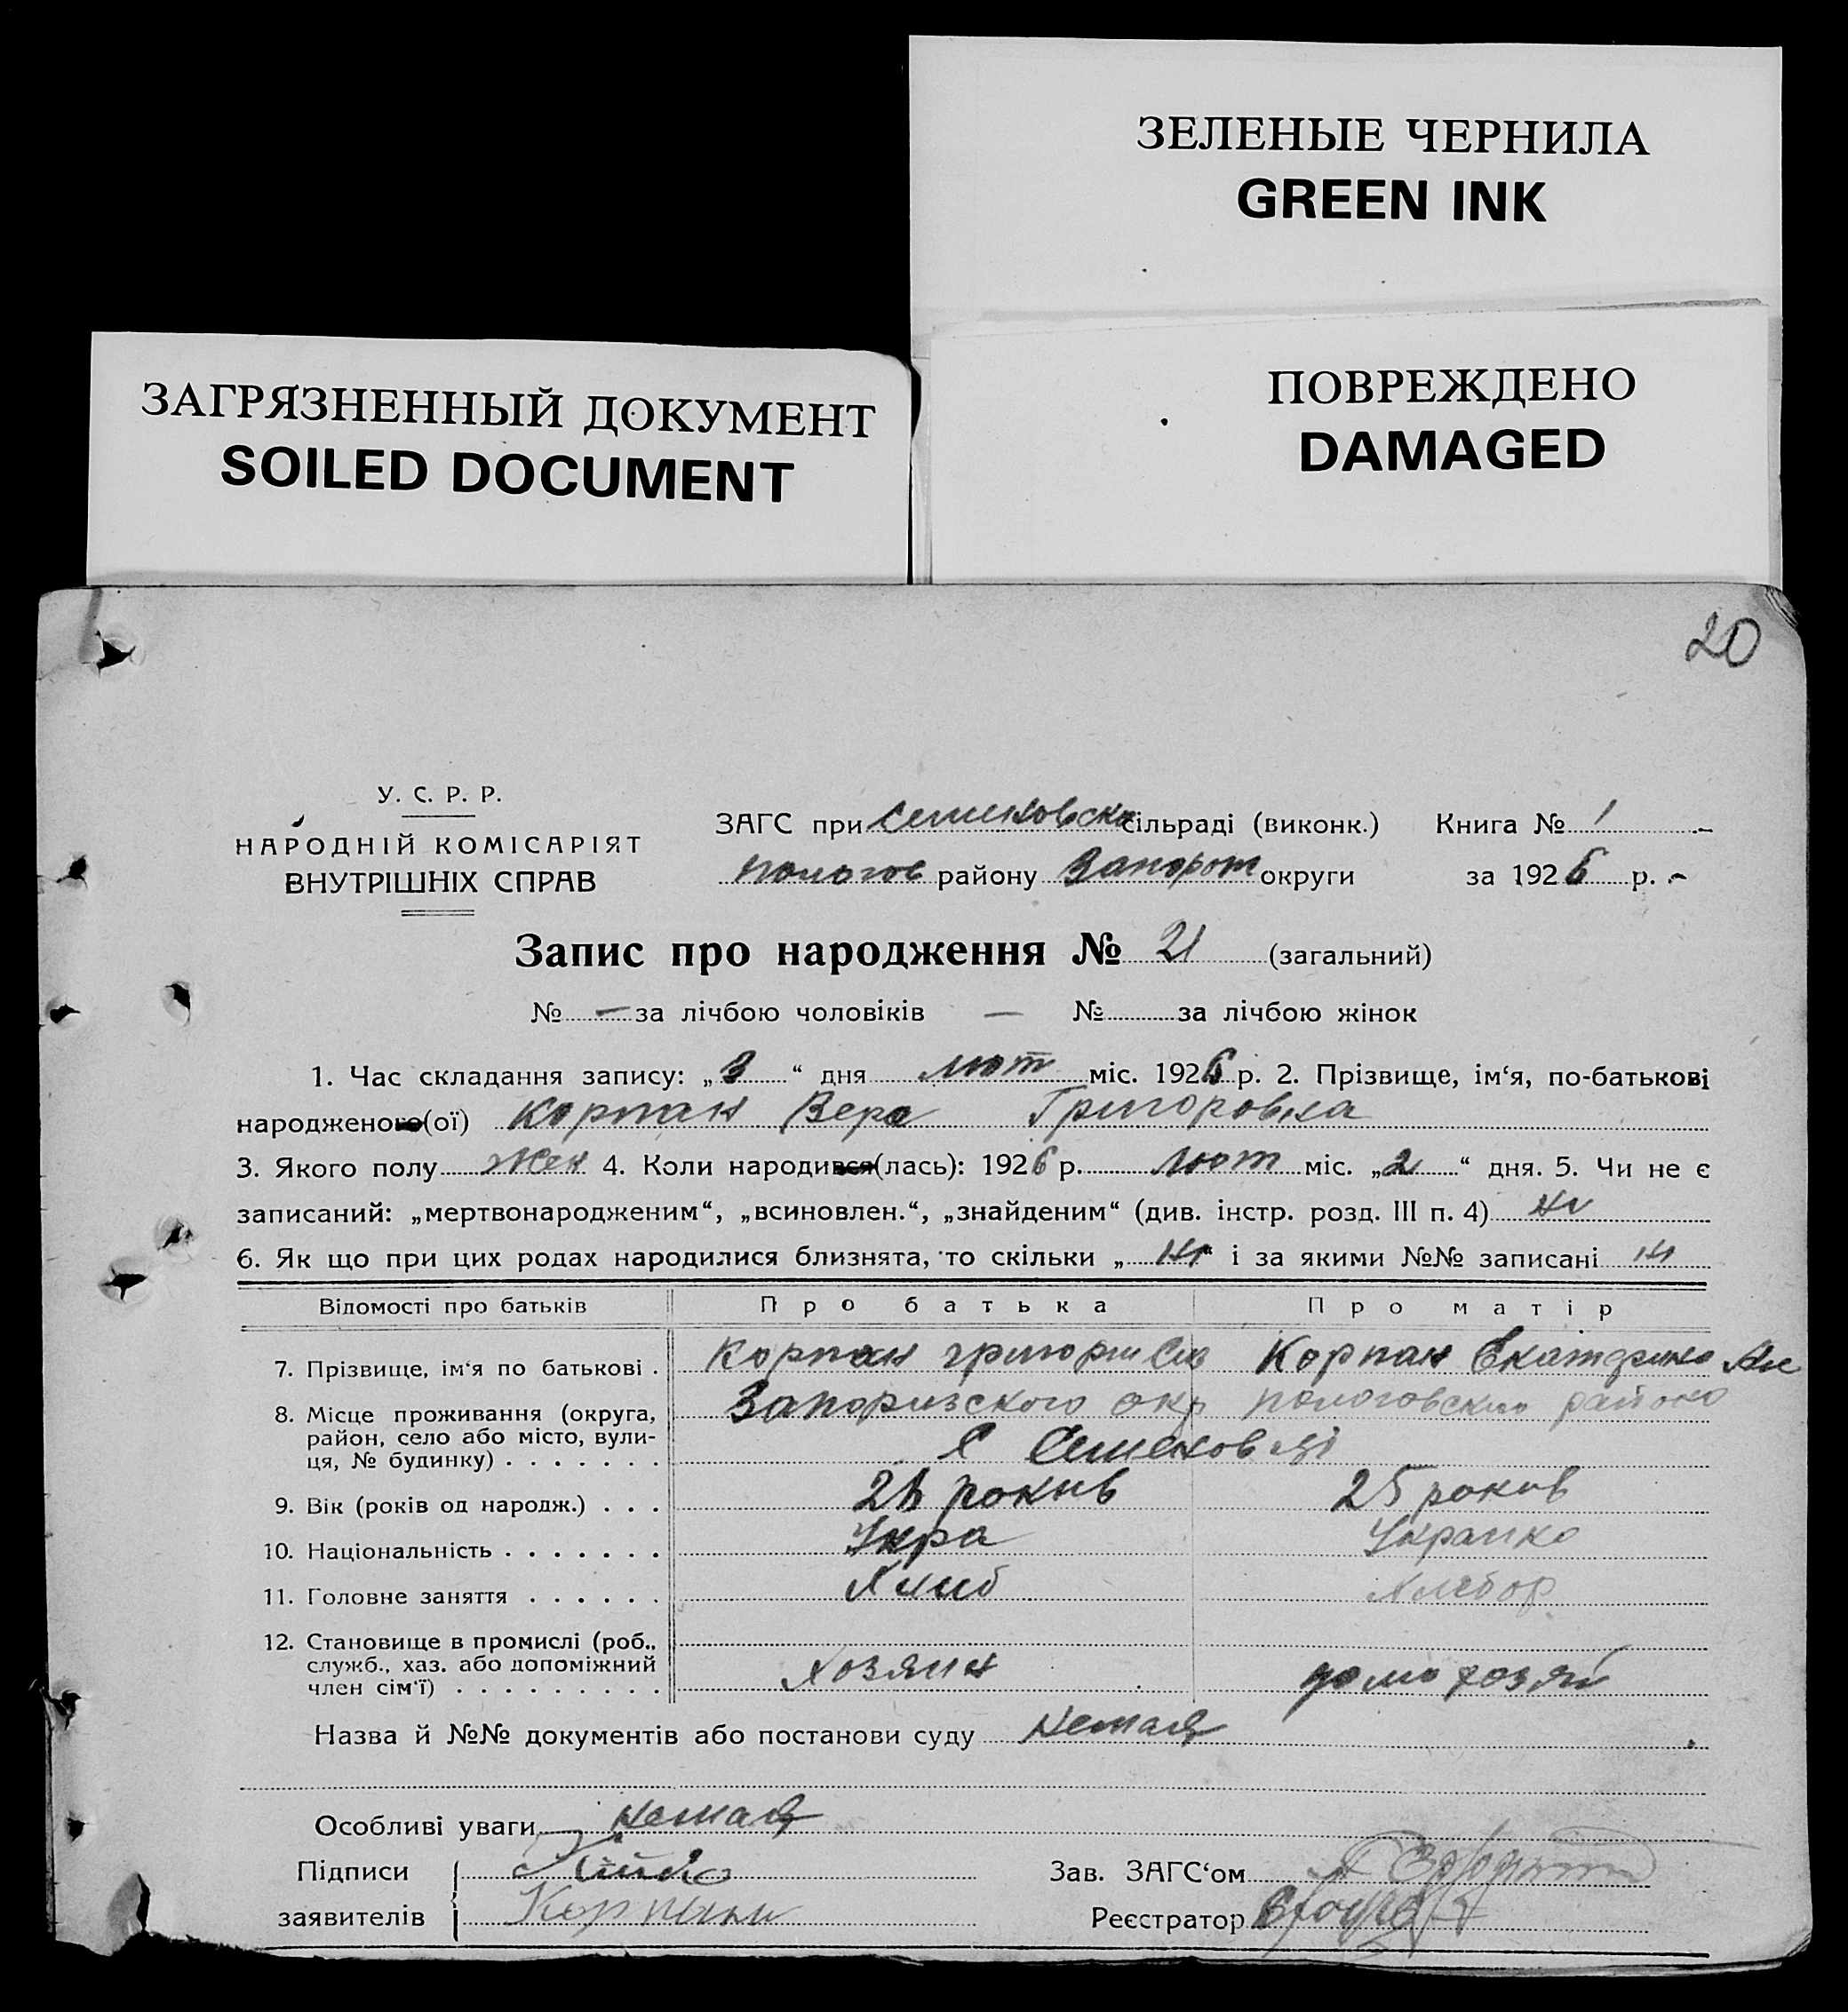 ЗЕЛЕНЫЕ ЧЕРНИЛА
GREEN INK
ЗАГРЯЗНЕННЫЙ ДОКУМЕНТ
SOILED DOCUMENT
ПОВРЕЖДЕНО
DAMAGED
20
У. С. Р. Р.
НАРОДНІЙ КОМІСАРІЯТ
ВНУТРІШНІХ СПРАВ
ЗАГС при Семеновско сільраді (виконк.) Книга № 1
пологов району Запорож округи за 1926 р.
Запис про народження № 21 (загальний)
№ — за лічбою чоловіків — № за лічбою жінок
1. Час складання запису: „3“ дня лют міс. 1926 р. 2. Прізвище, ім‘я, по-батькові
народженого(ої) Корпан Вера Григоровна
3. Якого полу жен 4. Коли народився(лась): 1926 р. лют міс. „2“ дня. 5. Чи не є
записаний: „мертвонародженим“, „всиновлен.“, „знайденим“ (див. інстр. розд. III п. 4)
6. Як що при цих родах народилися близнята, то скільки „ “ і за якими №№ записані
Відомості про батьків Про батька Про матір
7. Прізвище, ім‘я по батькові . Корпан Григори Корпан Екатерина
8. Місце проживання (округа, Запоризского окр пологовского района
район, село або місто, вули-
ця, № будинку) . . . . . . . С Семеновці
9. Вік (років од народж.) . . . рокив 25 рокив
10. Національність . . . . . . . Укра Украинка
11. Головне заняття . . . . . . Хлиб Хлебор
12. Становище в промислі (роб.,
служб., хаз. або допоміжний
член сім‘ї) . . . . . . . . . Хозяин домохозяй
Назва й №№ документів або постанови суду Немає
Особливі уваги Немає
Підписи Зав. ЗАГС‘ом
заявителів Реєстратор